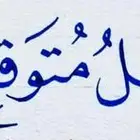 لُ مُتَوَق